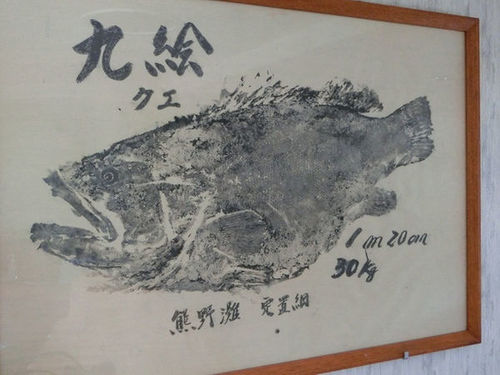 九絵
クエ
1m20cm
30kg
熊野灘 定置網